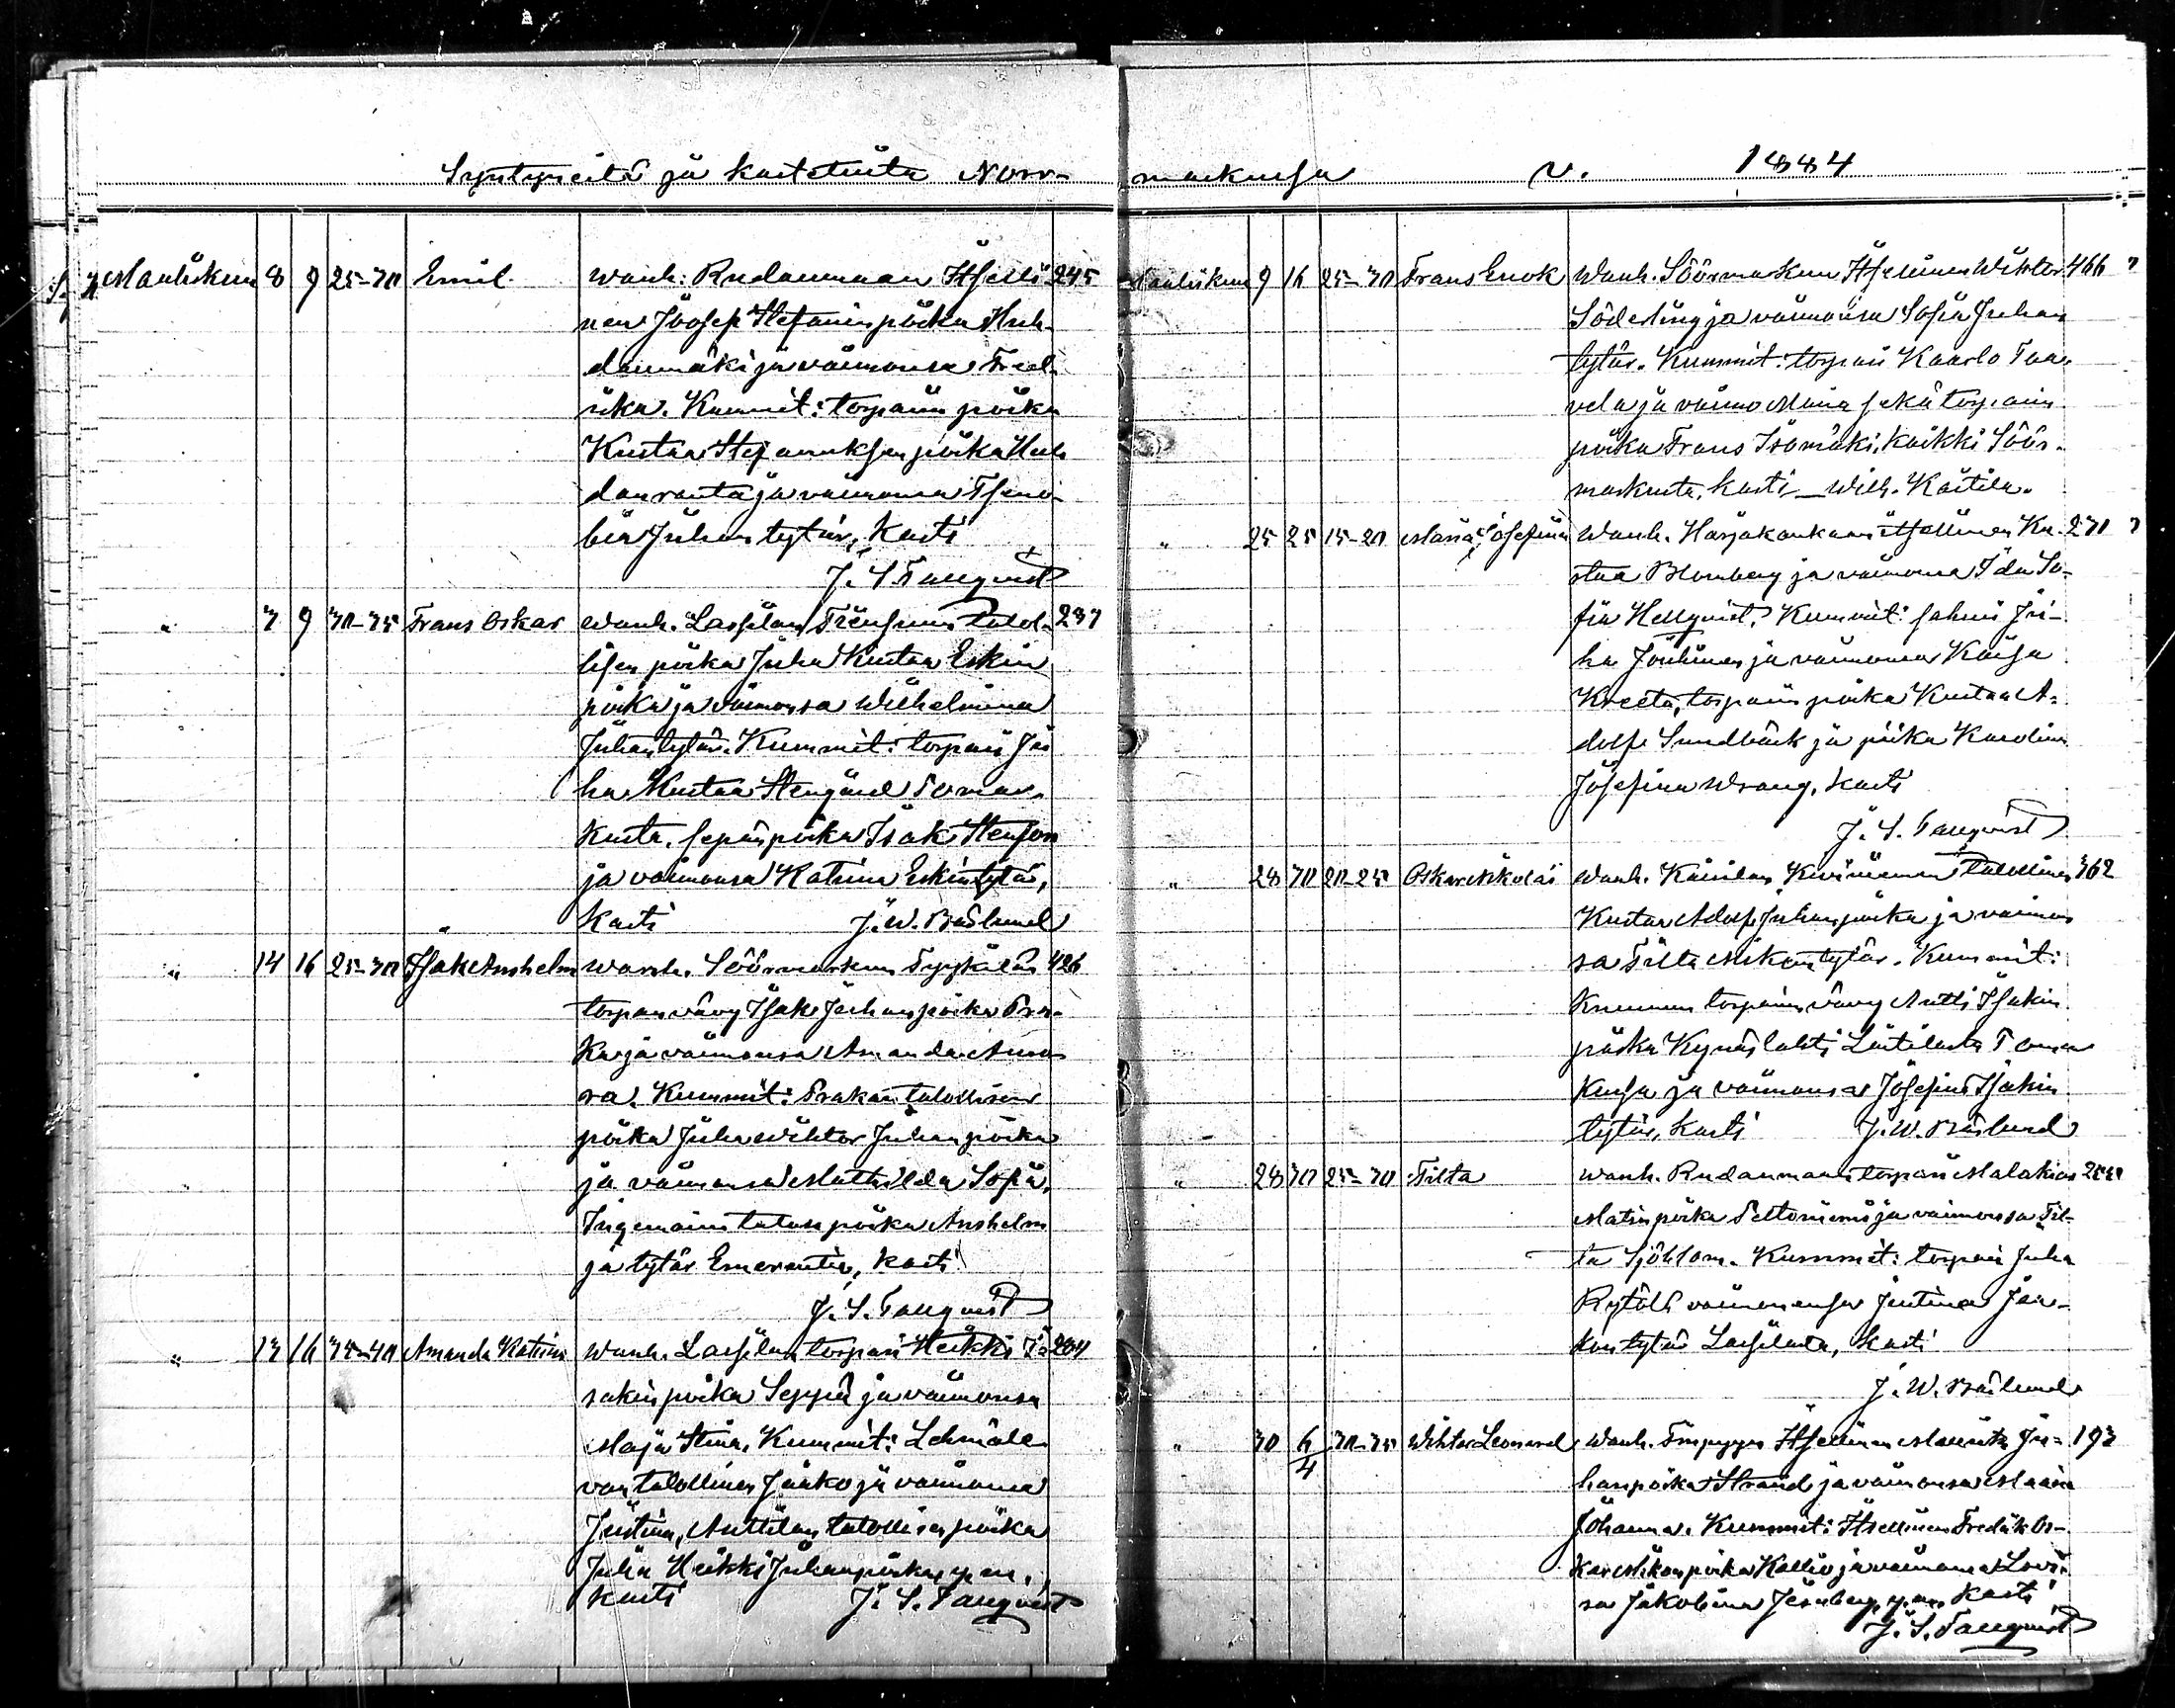 Syntyneitä ja kastetuita Norr-
Maaliskuu 8 9 25-30 Emil Wanh. Rudanmaan Itselli- 245
nen Joosef Stefanin poika Huh-
danmäki ja vaimonsa Fred-
rika. Kummit: torparin poika
Kustaa Stefanuksen poika Huh-
danranta ja vaimonsa
Juhan tytär, Kasti
J. S. Tanqvist
" 7 9 30-35 Frans Oskar Wanh. Lassilan talol- 237
lisen poika Juha Kustaa Eskin
poika ja vaimonsa Wilhelmina
Juhantytär. Kummit: torpari Ju-
ha Kustaa
kusta, sepän poika Isak Stenfors
ja vaimonsa Katrina Eskintytär,
Kasti J. W. Båslund
" 14 16 25-30 Isak Anshelm Wanh. Söörmarkun 426
torpan vävy Isak Juhanpoika
ja vaimonsa Amanda
Kummit: talollisen
poika Juha Wihtor Juhanpoika
ja vaimonsa Mathilda Sofia,
talon poika Anshelm
ja tytär Emerentia, Kasti
J. S. Tanqvist
" 13 16 35-40 Amanda Katrina Wanh. Lassilan torpari Heikki I- 204
sakinpoika Seppä ja vaimonsa
Maja Stina, Kummit:
talollinen Jaakko ja vaimonsa
Justina, Anttilan talollisen poika
Juha Heikki Juhanpoika y. m.
Kasti J. S. Tanqvist
markussa v. 1884
Maaliskuu 9 16 25-30 Frans Enok Wanh. Söörmarkun Itsellinen Wihtor 466
Söderling ja vaimonsa Sofia Juhan
tytär. Kummit: torpari Kaarlo Taa-
vela ja vaimo Miina sekä torparin
poika Frans Isomäki, kaikki Söör-
markusta, kasti Wilh. Käitilä.
" 25 25 15-20 Maria Josefina Wanh. Harjakankaan itsellinen Ku- 271
staa Blomberg ja vaimonsa Ida So-
fia Hellqvist. Kummit: Ju-
ha ja vaimonsa Kaisa
Kreeta, torparin poika Kustaa A-
dolf Sundbäck ja piika Karolina
Josefina Wrang, kasti
J. S. Tanqvist
" 28 30 20-25 Oskar Nikolai Wanh. talollinen 362
Kustaa Adolf Juhanpoika ja vaimon-
sa Tilta tytär. Kummit:
torparin vävy Antti Isakin
poika Kynäslahti
ja vaimonsa Josefina Isakin
tytär, Kasti J. W. Båslund
" 28 30 25-30 Tilta Wanh. Rudanmaan torpari Malakias
Matinpoika Peltoniemi ja vaimonsa Til-
ta Sjöblom. Kummit: torpari Juha
vaimonensa Justina Jaa-
kontytär Lassilasta, Kasti
J. W. Båslund
" 30 6/4 30-35 Wihtor Leonard Wanh. Itsellinen Mauritz Ju- 193
hanpoika Strand ja vaimonsa Maria
Johanna. Kummit: Itsellinen Fredrik Os-
kar poika Kallio ja vaimonsa Lovi-
sa Jakobina y. m. Kasti
J. S. Tanqvist